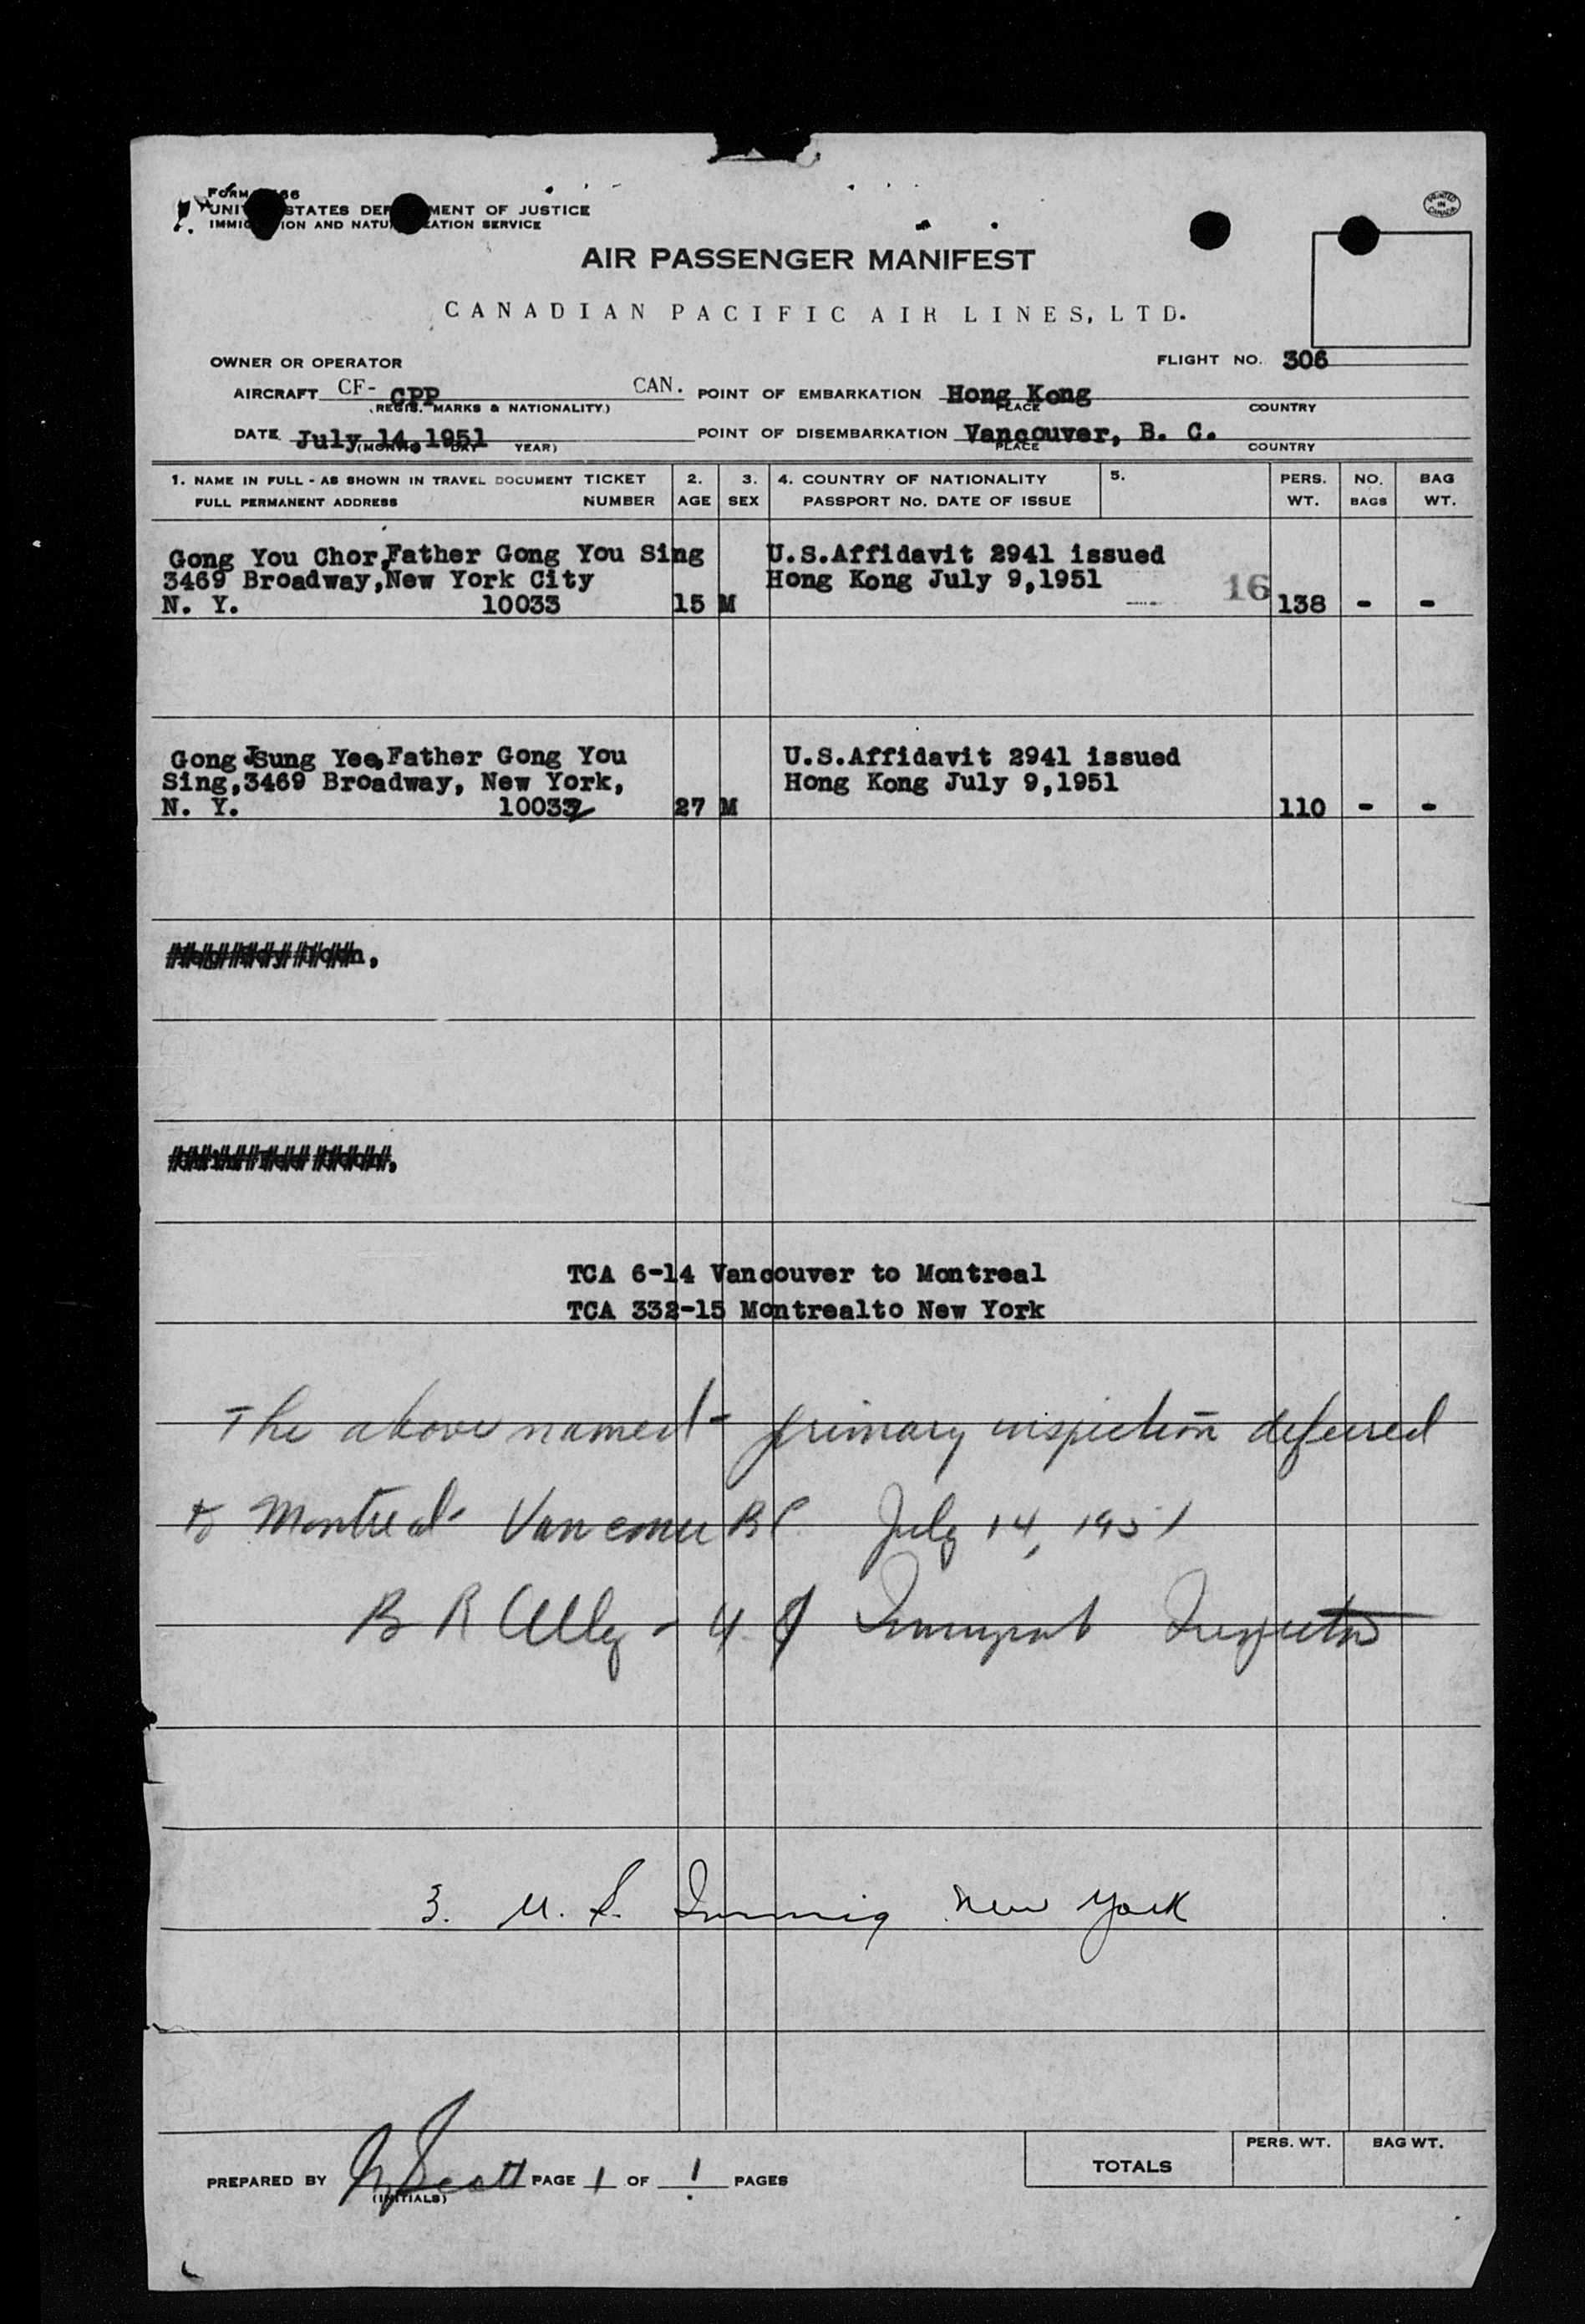 FORM 66
UNITED STATES DEPARTMENT OF JUSTICE
IMMIGRATION AND NATURALIZATION SERVICE
PRINTED IN CANADA
AIR PASSENGER MANIFEST
CANADIAN PACIFIC AIR LINES, LTD.
OWNER OR OPERATOR
FLIGHT NO. 306
AIRCRAFT CF- CPP CAN. POINT OF EMBARKATION Hong Kong
(REGIS. MARKS & NATIONALITY) PLACE COUNTRY
DATE July 14,1951 POINT OF DISEMBARKATION Vancouver, B. C.
(MONTH DAY YEAR) PLACE COUNTRY
1. NAME IN FULL - AS SHOWN IN TRAVEL DOCUMENT TICKET 2. 3. 4. COUNTRY OF NATIONALITY 5. PERS. NO. BAG
FULL PERMANENT ADDRESS NUMBER AGE SEX PASSPORT No. DATE OF ISSUE WT. BAGS WT.
Gong You Chor,Father Gong You Sing U.S.Affidavit 2941 issued
3469 Broadway,New York City Hong Kong July 9,1951 16
N. Y. 10033 15 M 138 - -
Gong Sung Yee,Father Gong You U.S.Affidavit 2941 issued
Sing,3469 Broadway, New York, Hong Kong July 9,1951
N. Y. 10032 27 M 110 - -
TCA 6-14 Vancouver to Montreal
TCA 332-15 Montrealto New York
The above named - primary inspection deferred
to Montreal - Vancouver BC. July 14, 1951
B R - U S Immigrant Inspector
3. U. S. Immig New York
PREPARED BY Scott PAGE 1 OF 1 PAGES
(INITIALS)
TOTALS PERS. WT. BAG WT.